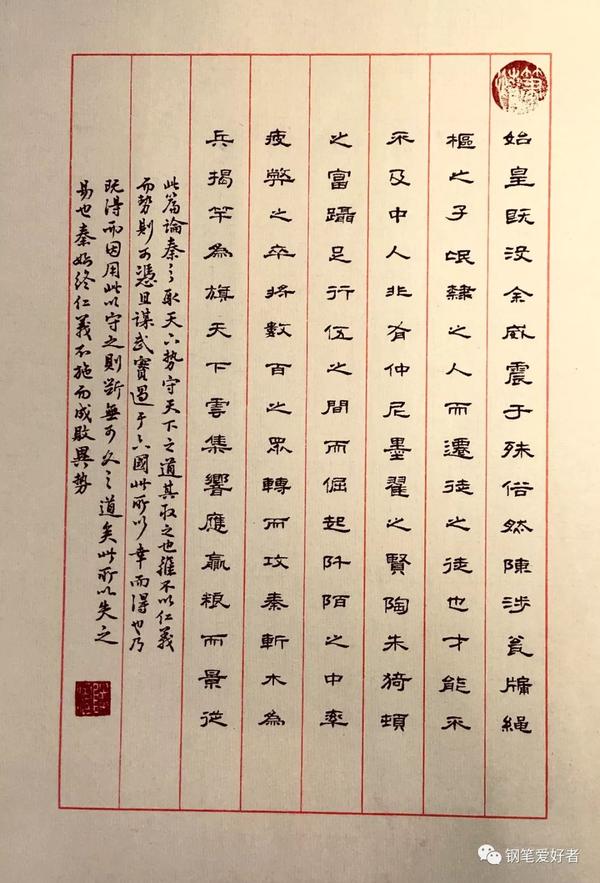 始皇既没余威震于殊俗然陳涉瓮牖繩
樞之子氓隸之人而遷徙之徒也才能不
不及中人非有仲尼墨翟之賢陶朱猗頓
之富躡足行伍之間而倔起阡陌之中率
疲弊之卒将數百之眾轉而攻秦斬木為
兵揭竿為旗天下雲集響應贏粮而景從
此篇論秦之取天下勢守天下之道其取之也雖不以仁義
而勢則可憑且謀武實過于六國此所以幸而得也乃
既得而因用此以守之則斷無可久之道矣此所以失之
易也秦始終仁義不施而成敗異勢
钢笔爱好者